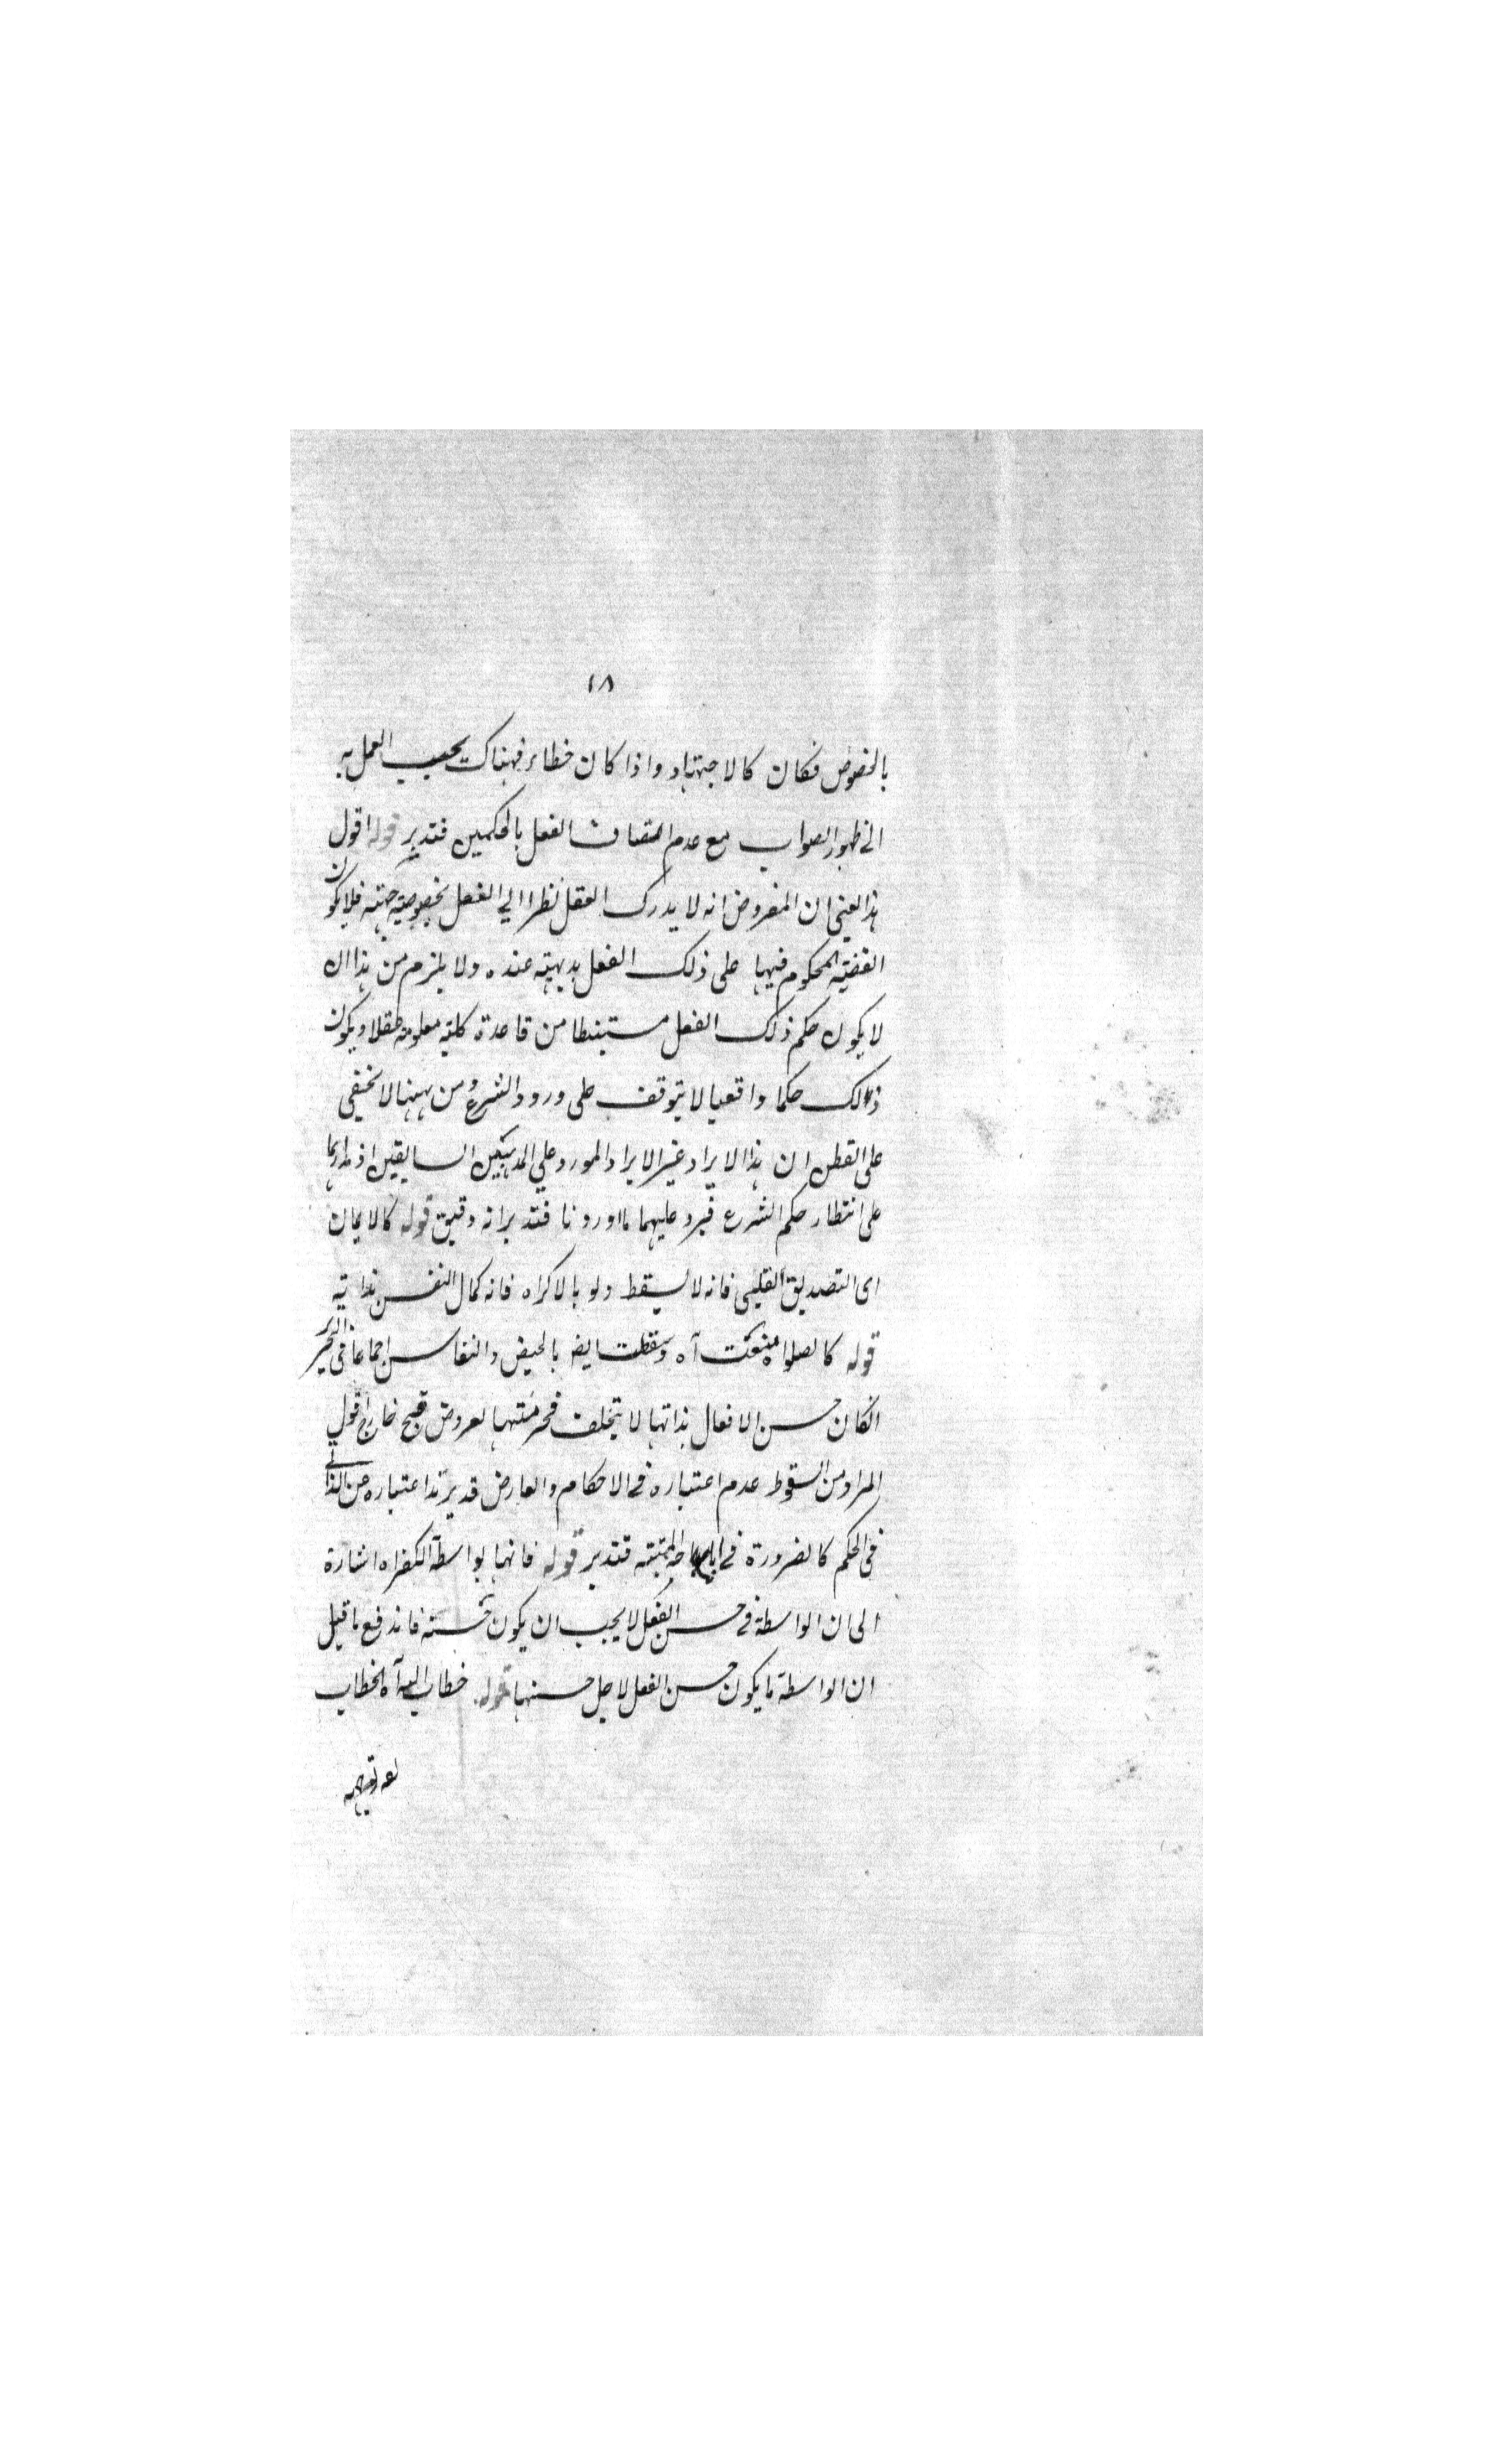 ١٨
بالخصوص فكان كالاجتهاد واذا كان خطاء فهناك يجب العمل به
الى ظهور الصواب مع عدم اتصاف الفعل بالحكمين فتدبر قوله اقول
هذا يعنى ان المفروض انه لا يدرك العقل نظرا الي الفعل بخصوصيته جهته فلا يكون
القضية المحكوم فيها على ذلك الفعل بديهية عنده ولا يلزم من هذا ان
لا يكون حكم ذلك الفعل مستنبطا من قاعدة كلية معلومة عقلا ويكون
ذلك حكما واقعيا لا يتوقف على ورود الشرع ومن ههنا لا يخفى
على الفطن ان هذا الايراد غير الايراد المورد علي المذهبين السابقين اذ مدارهما
على انتظار حكم الشرع فيرد عليهما ما اوردنا فتدبر انه دقيق قوله كالايمان
اى التصديق القلبى فانه لا يسقط ولو بالاكراه فانه كمال النفس بذاته
قوله كالصلواة منعت آه وسقطت ايضا بالحيض والنفاس اجماعا فى التحرير
ان كان حسن الافعال بذاتها لا يتخلف فحرمتها لعروض قبح خارج اقول
المراد من السقوط عدم اعتباره فى الاحكام والعارض قد يزيد اعتباره عن الذاتى
فى الحكم كالضرورة فى اباحة الميتة فتدبر قوله فانها بواسطة الكفر اه اشارة
الى ان الواسطة فى حسن الفعل لا يجب ان يكون حسنة فاندفع ما قيل
ان الواسطة ما يكون حسن الفعل لاجل حسنها قوله خطاب الله آه الخطاب